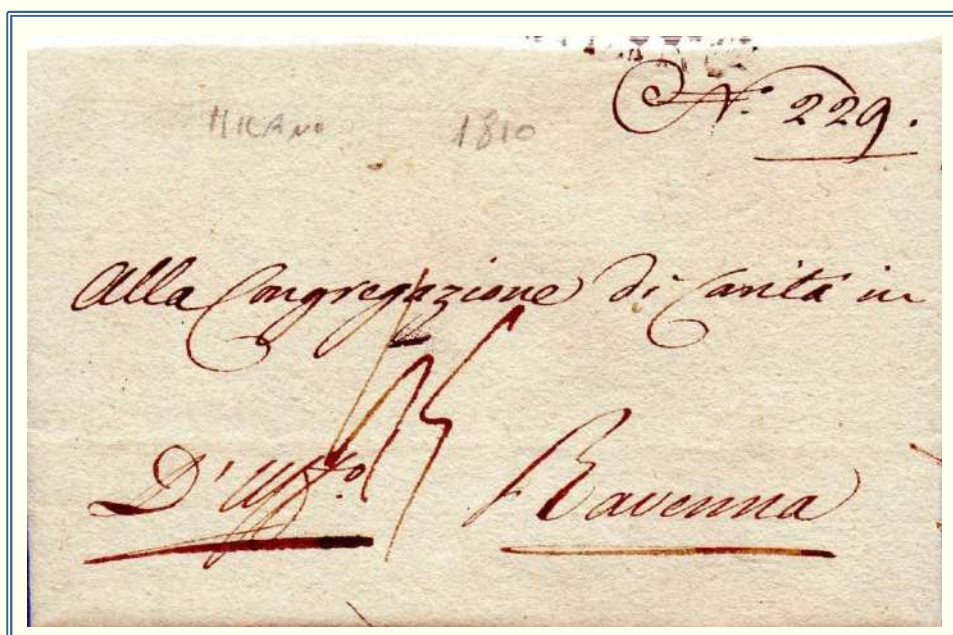 N.o 229.
Milano 1810
Alla Congregazione di Carità in
D'Uff.o Ravenna